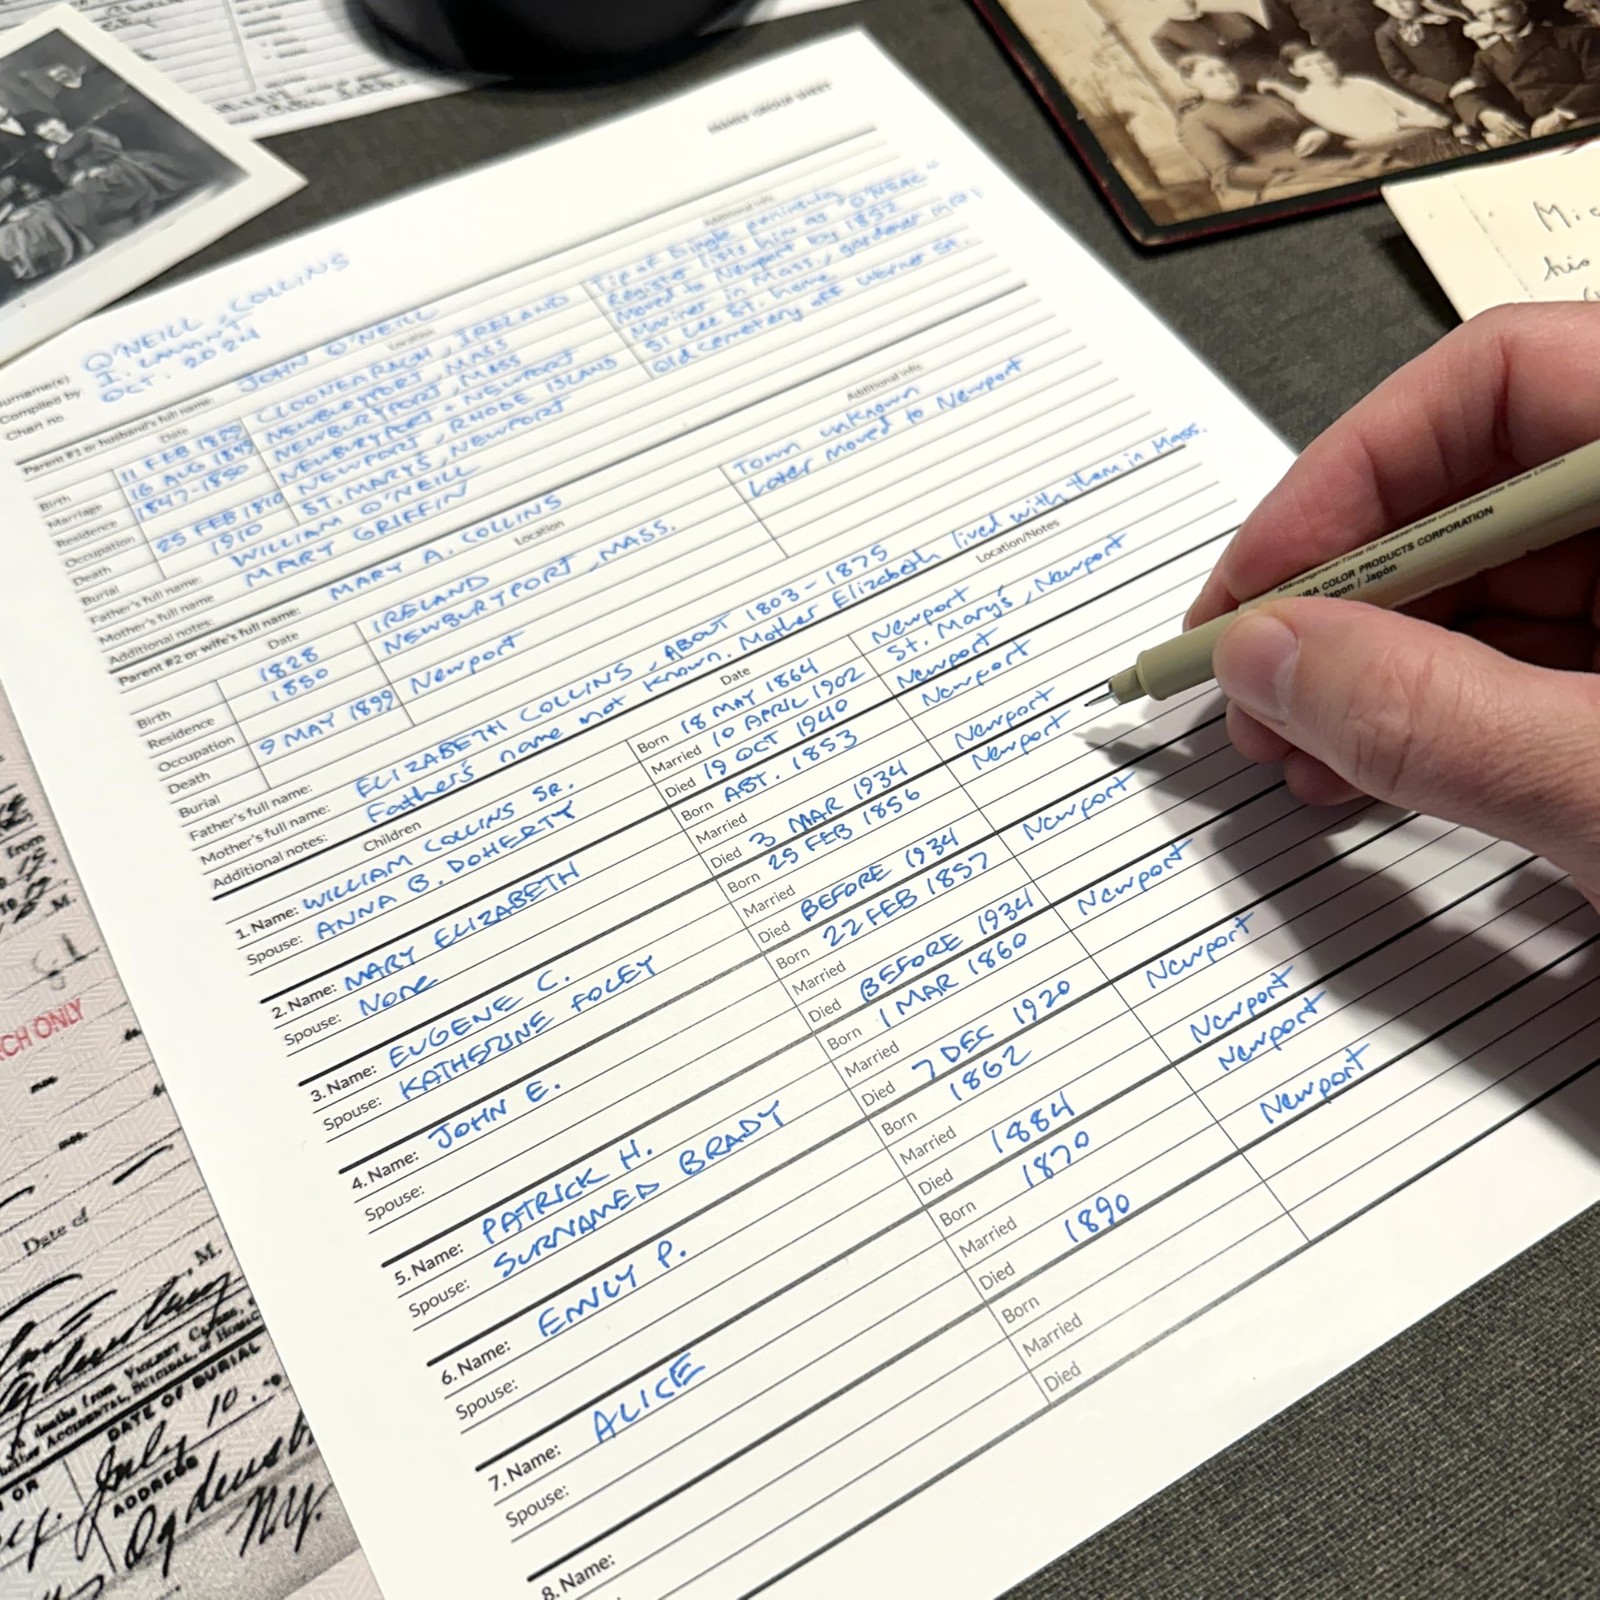 FAMILY GROUP SHEET
Surname(s) O'NEILL, COLLINS
Compiled by
Chart no OCT. 2024
Parent #1 or husband's full name: JOHN O'NEILL
Date Location Additional info
Birth 11 FEB 1829 CLOONEARAGH, IRELAND Tip of Dingle peninsula
Marriage 16 AUG 1849 NEWBURYPORT, MASS Register lists him as O'NEAR
Residence 1847-1850 NEWBURYPORT, MASS Moved to Newport by 1852
Occupation NEWBURYPORT + NEWPORT Mariner in Mass, gardener in RI
Death 25 FEB 1910 NEWPORT, RHODE ISLAND 51 Lee St. home
Burial 1910 ST. MARY'S, NEWPORT Old cemetery off Warner St.
Father's full name: WILLIAM O'NEILL
Mother's full name MARY GRIFFIN
Additional notes:
Parent #2 or wife's full name: MARY A. COLLINS
Date Location Additional info
Birth 1828 IRELAND Town unknown
Residence 1850 NEWBURYPORT, MASS. Later moved to Newport
Occupation
Death 9 MAY 1899 Newport
Burial
Father's full name:
Mother's full name: ELIZABETH COLLINS, ABOUT 1803-1875
Additional notes: Father's name not known. Mother Elizabeth lived with them in Mass.
Children Date Location/Notes
1. Name: WILLIAM COLLINS SR. Born 18 MAY 1864 Newport
Spouse: ANNA B. DOHERTY Married 10 APRIL 1902 St. Mary's, Newport
Died 19 OCT 1940 Newport
2. Name: MARY ELIZABETH Born ABT. 1853 Newport
Spouse: None Married
Died 3 MAR 1934 Newport
3. Name: EUGENE C. Born 25 FEB 1856 Newport
Spouse: KATHERINE FOLEY Married
Died BEFORE 1934
4. Name: JOHN E. Born 22 FEB 1857 Newport
Spouse: Married
Died BEFORE 1934
5. Name: PATRICK H. Born 1 MAR 1860 Newport
Spouse: SURNAMED BRADY Married
Died 7 DEC 1920 Newport
6. Name: EMILY P. Born 1862 Newport
Spouse: Married
Died 1884 Newport
7. Name: ALICE Born 1870 Newport
Spouse: Married
Died 1890
8. Name: Born
Married
Died
COLOR PRODUCTS CORPORATION
Japon / Japón
his
from
M.
RCH ONLY
Date of
M.
deaths from VIOLENT CAUSES,
ACCIDENTAL, SUICIDAL,
DATE OF BURIAL
July 10
ADDRESS
NY.